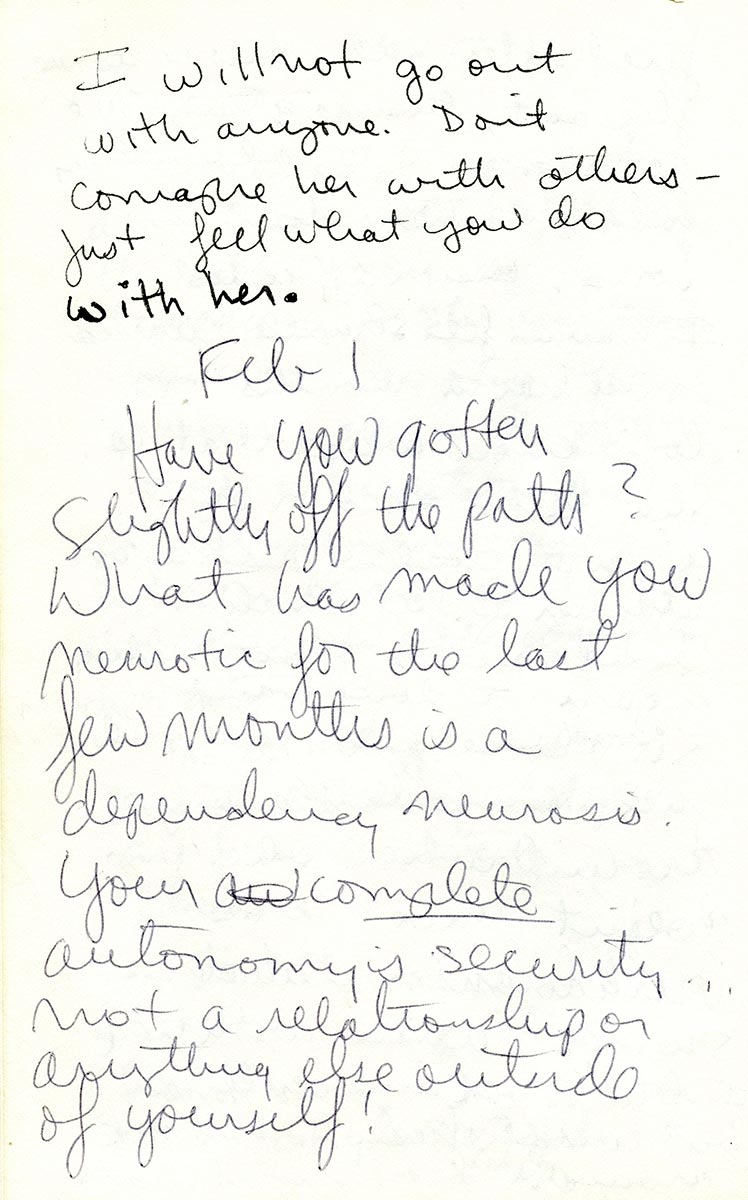 I will not go out
with anyone. Don't
compare her with others –
just feel what you do
with her.
Feb 1
Have you gotten
slightly off the path?
What has made you
neurotic for the last
few months is a
dependency neurosis.
Your complete
autonomy is security...
not a relationship or
anything else outside
of yourself!